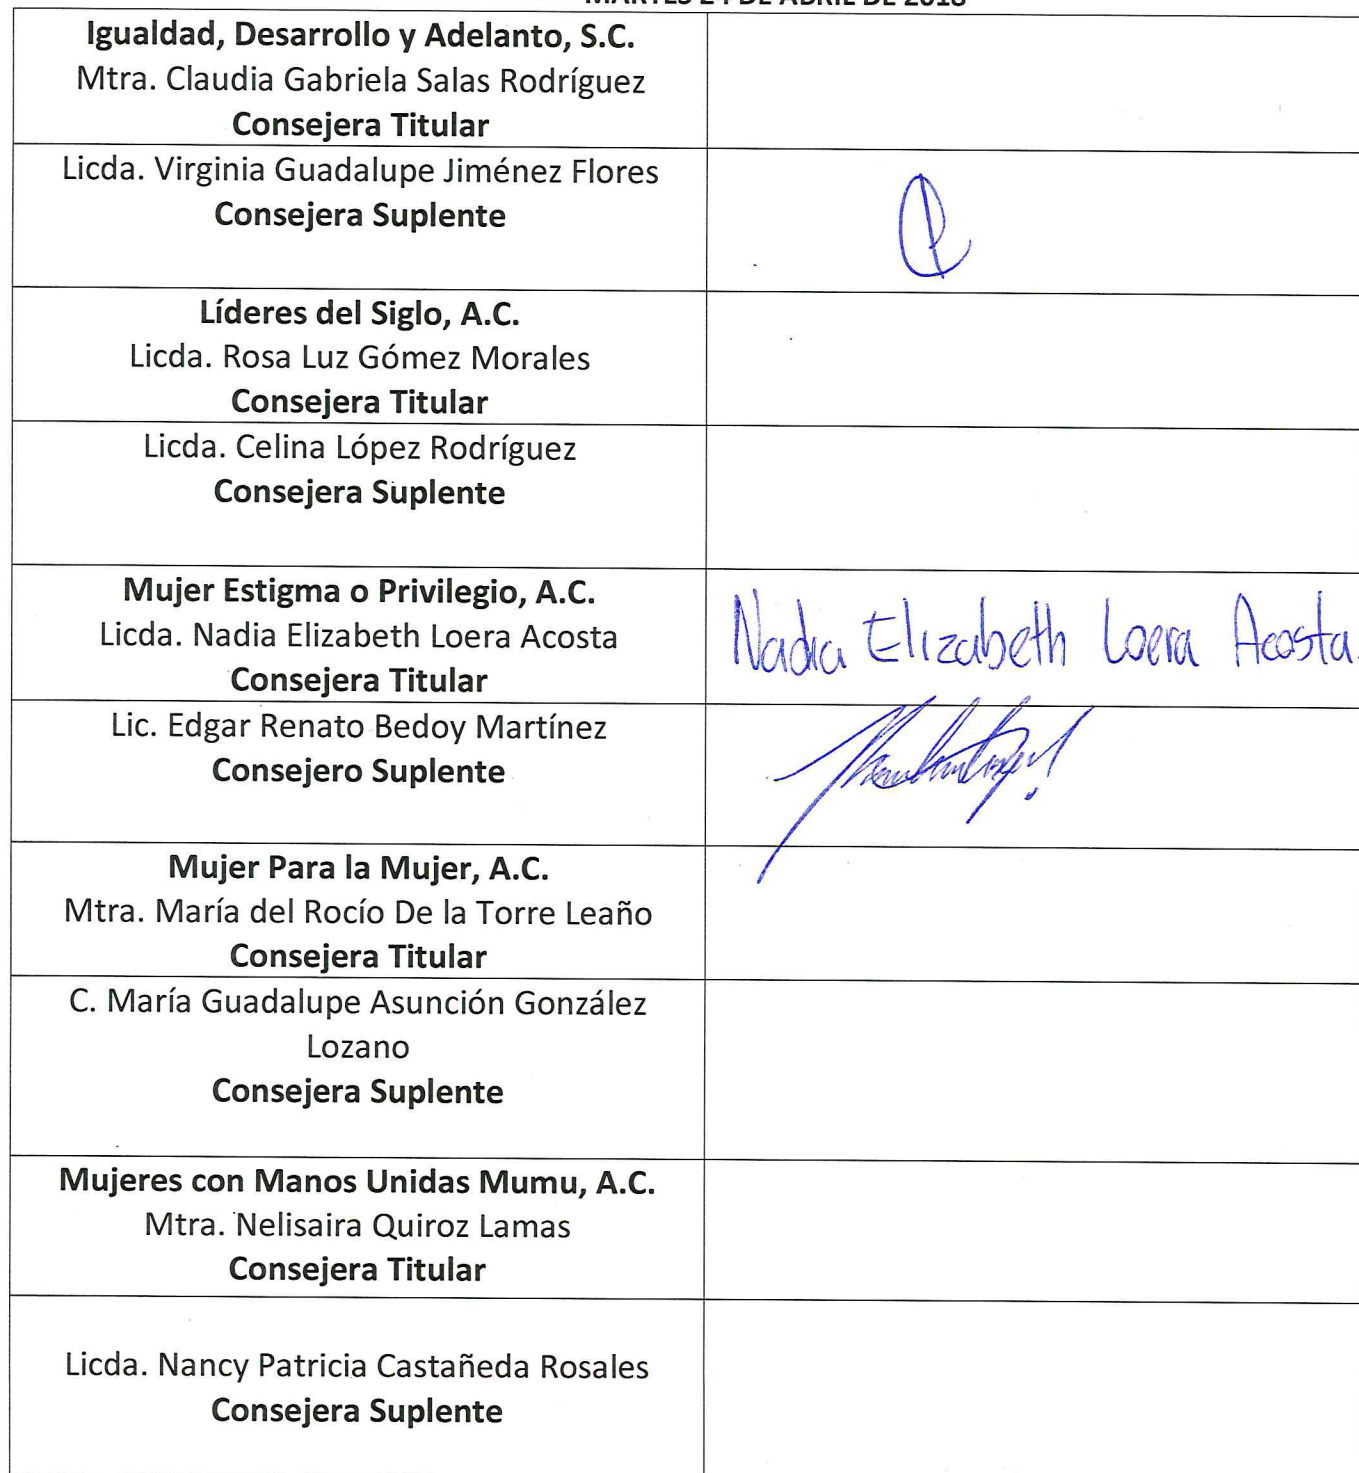 MARTES 24 DE ABRIL DE 2018
Igualdad, Desarrollo y Adelanto, S.C.
Mtra. Claudia Gabriela Salas Rodríguez
Consejera Titular
Licda. Virginia Guadalupe Jiménez Flores
Consejera Suplente
Líderes del Siglo, A.C.
Licda. Rosa Luz Gómez Morales
Consejera Titular
Licda. Celina López Rodríguez
Consejera Suplente
Mujer Estigma o Privilegio, A.C.
Licda. Nadia Elizabeth Loera Acosta
Consejera Titular
Nadia Elizabeth Loera Acosta.
Lic. Edgar Renato Bedoy Martínez
Consejero Suplente
Mujer Para la Mujer, A.C.
Mtra. María del Rocío De la Torre Leaño
Consejera Titular
C. María Guadalupe Asunción González
Lozano
Consejera Suplente
Mujeres con Manos Unidas Mumu, A.C.
Mtra. Nelisaira Quiroz Lamas
Consejera Titular
Licda. Nancy Patricia Castañeda Rosales
Consejera Suplente